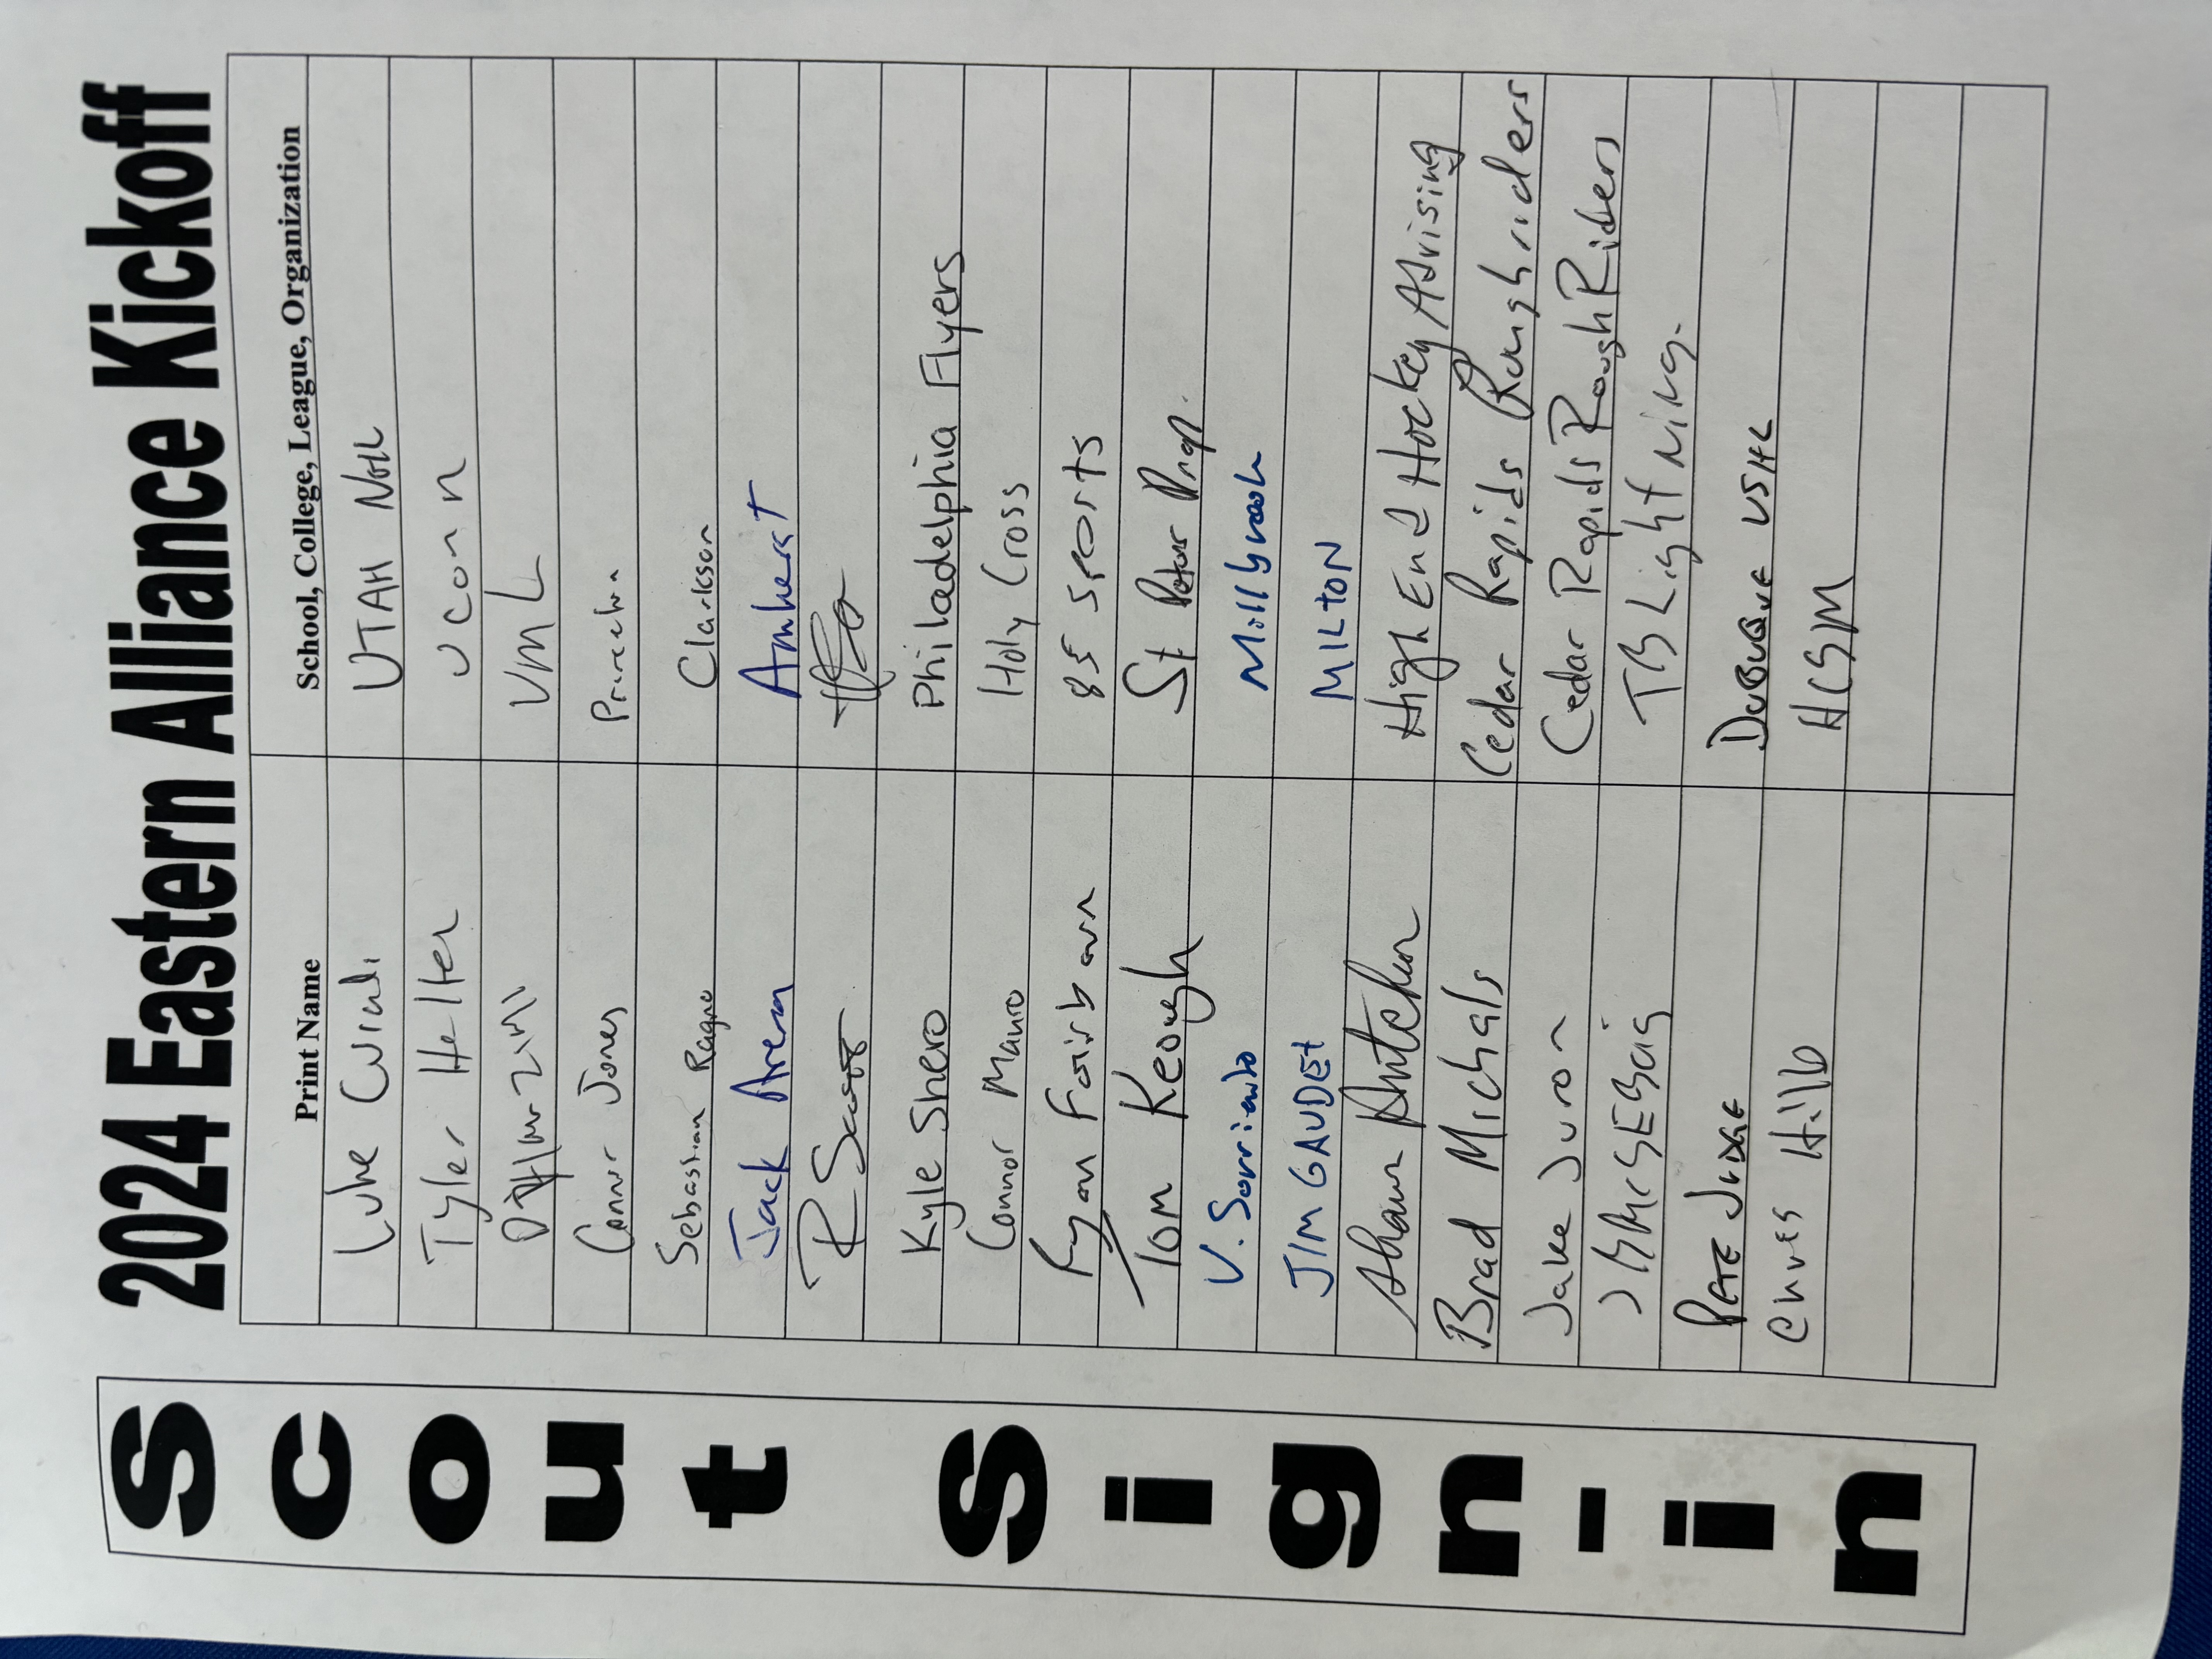 2024 Eastern Alliance Kickoff
Scout Sign-in
Print Name School, College, League, Organization
Luke UTAH NHL
Tyler Helter UConn
UML
Connor Jones Princeton
Sebastian Ragno Clarkson
Jack Arena Amherst
R Scott
Kyle Shero Philadelphia Flyers
Connor Mauro Holy Cross
Ryan Fairbarn 85 Sports
Tom Keough St Peters Prep.
V. Millbrook
JIM GAUDET MILTON
Shawn High End Hockey Advising
Brad Michals Cedar Rapids Roughriders
Jake Juron Cedar Rapids RoughRiders
TB Lightning.
PETE JUDGE DUBUQUE USHL
Hills